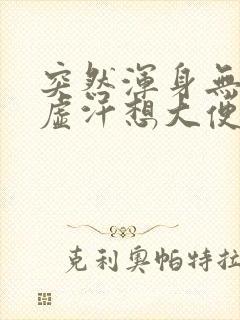 突然渾身無
虛汗想大便
克利奧帕特拉